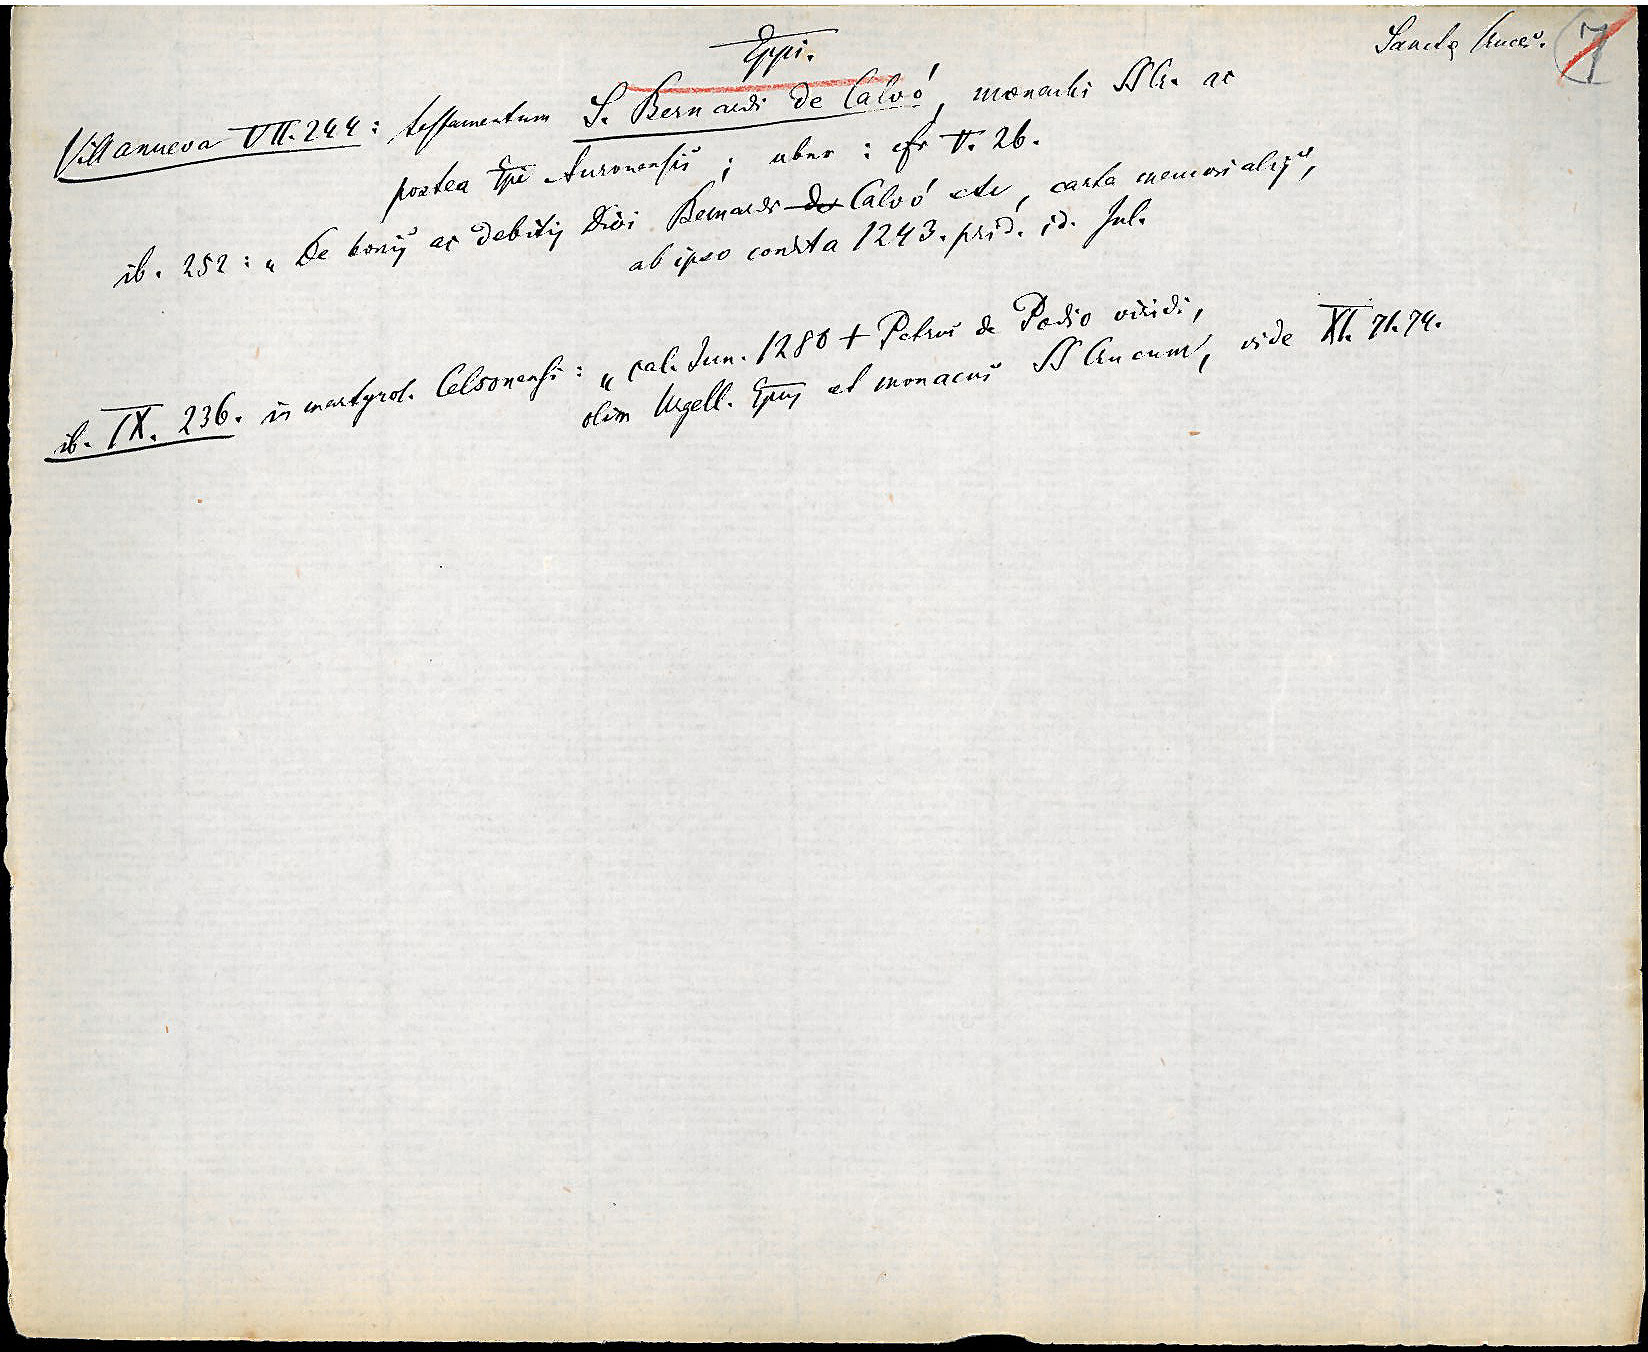 Eppi.
Sanctę Cruces. 7
Villanueva VII. 244: testamentum S. Bernardi de Calvó, monachi SS Cr. ac
postea Epi Ausonensis; uber: cfr V. 26.
ib. 252: „De bonis ac debitis Divi Bernardi de Calvó etc, carta memorialis",
ab ipso condita 1243. prid. id. Jul.
ib. IX. 236. in martyrol. Celsonensi: „cal. Jun. 1280 + Petrus de Podio viridi,
olim Urgell. Epus et monacus SS Crucum", vide XI. 71.74.